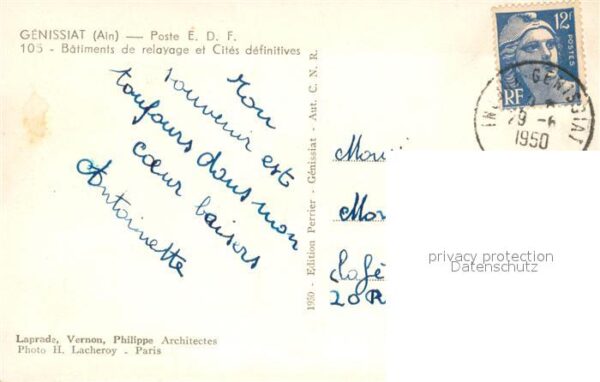 GÉNISSIAT (Ain) — Poste E. D. F.
105 - Bâtiments de relayage et Cités définitives
Mon
souvenir est
toujours dans mon
cœur baisers
Antoinette
Laprade, Vernon, Philippe Architectes
Photo H. Lacheroy - Paris
1950 - Edition Perrier - Génissiat - Aut. C. N. R.
12F
POSTES
RF
GÉNISSIAT
29-6
1950
Mon
Mon
Café
20 R
privacy protection
Datenschutz